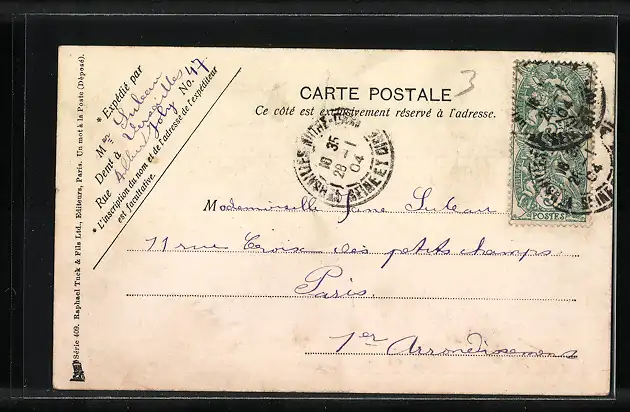 CARTE POSTALE
Ce côté est exclusivement réservé à l'adresse.
* Expédié par
M
Demt à Versailles
Rue No. 47
* L'inscription du nom et de l'adresse de l'expéditeur
est facultative.
3
16 35
28 -1
04
POSTES
Mademoiselle Jane
11 rue Croix des petits champs
Paris.
1er Arrondissement
Série 409. Raphael Tuck & Fils Ltd., Editeurs, Paris. Un mot à la Poste (Déposé).